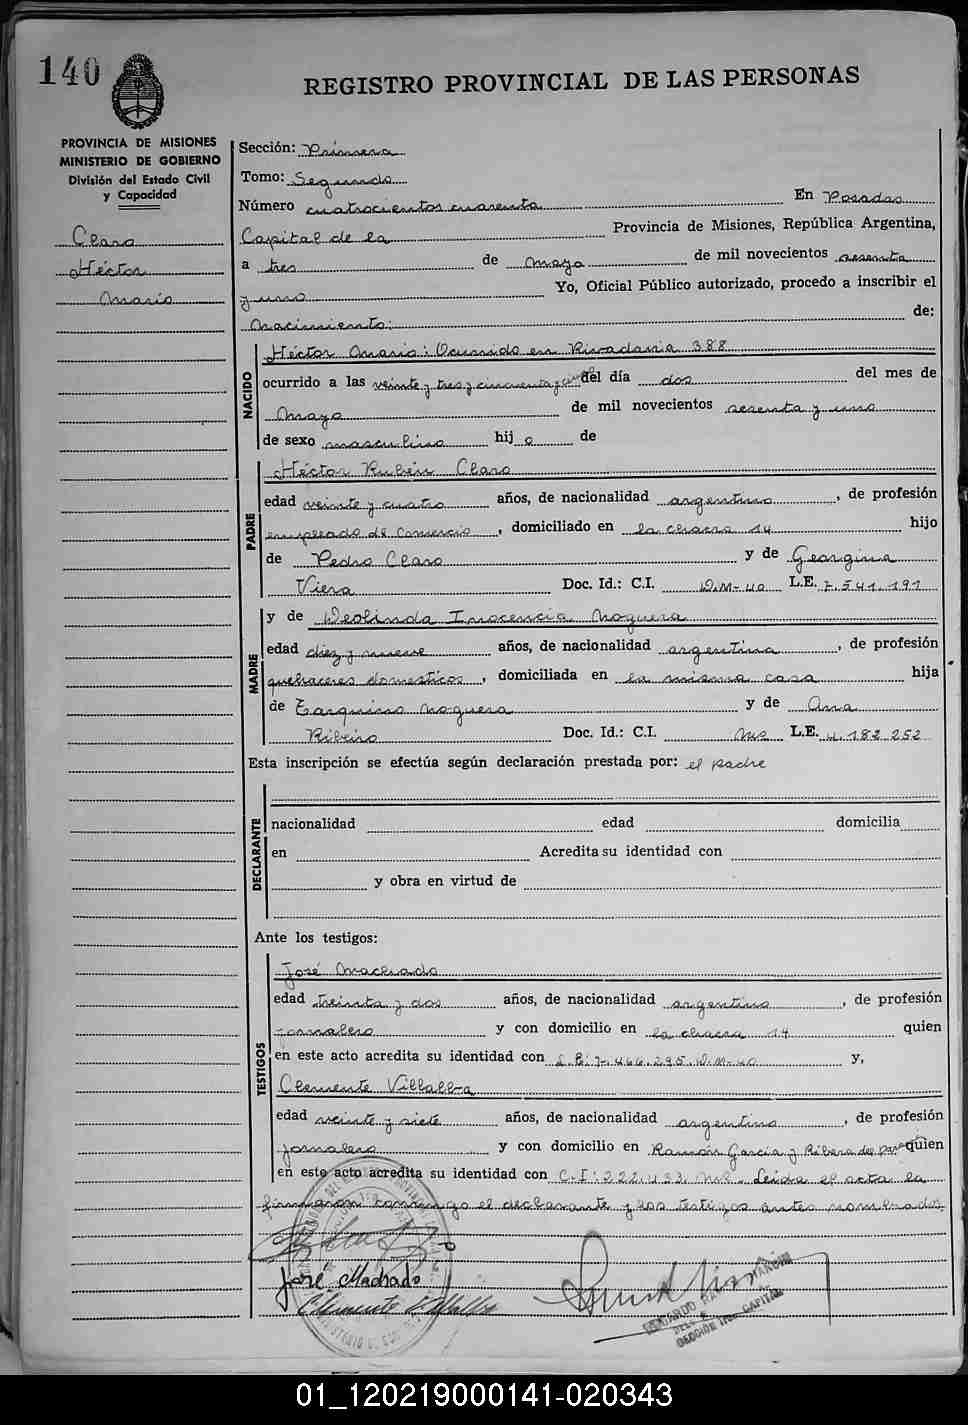 140
REGISTRO PROVINCIAL DE LAS PERSONAS
PROVINCIA DE MISIONES
MINISTERIO DE GOBIERNO
División del Estado Civil
y Capacidad
Claro
Héctor
Mario
Sección: Primera
Tomo: Segundo
Número cuatrocientos cuarenta En Posadas
Capital de la Provincia de Misiones, República Argentina,
a tres de mayo de mil novecientos sesenta
y uno Yo, Oficial Público autorizado, procedo a inscribir el
nacimiento: de:
NACIDO
Héctor Mario: Ocurrido en Rivadavia 388
ocurrido a las veinte y tres y cincuenta y del día dos del mes de
Mayo de mil novecientos sesenta y uno
de sexo masculino hij o de
PADRE
Héctor Rubén Claro
edad veinte y cuatro años, de nacionalidad argentino, de profesión
empleado de comercio, domiciliado en la chacra 14 hijo
de Pedro Claro y de Georgina
Viera Doc. Id.: C.I. D.M-40 L.E. 7.541.191
MADRE
y de Deolinda Inocencia Noguera
edad diez y nueve años, de nacionalidad argentina, de profesión
quehaceres domesticos, domiciliada en la misma casa hija
de Tarquino Noguera y de Ana
Ribeiro Doc. Id.: C.I. Mis L.E. 4.182.252
Esta inscripción se efectúa según declaración prestada por: el padre
DECLARANTE
nacionalidad edad domicilia
en Acredita su identidad con
y obra en virtud de
Ante los testigos:
TESTIGOS
José Machado
edad treinta y dos años, de nacionalidad argentino, de profesión
jornalero y con domicilio en la chacra 14 quien
en este acto acredita su identidad con L.E. 7.466.295. D.M-40 y,
Clemente Villalba
edad veinte y siete años, de nacionalidad argentino, de profesión
jornalero y con domicilio en Ramón García y Ribera del quien
en este acto acredita su identidad con C.I: 222.433. Mis. Leida el acta la
firmaron conmigo el declarante y los testigos antes nombrados.
José Machado
Clemente Villalba
SECCION 1RA. CAPITAL
01_120219000141-020343